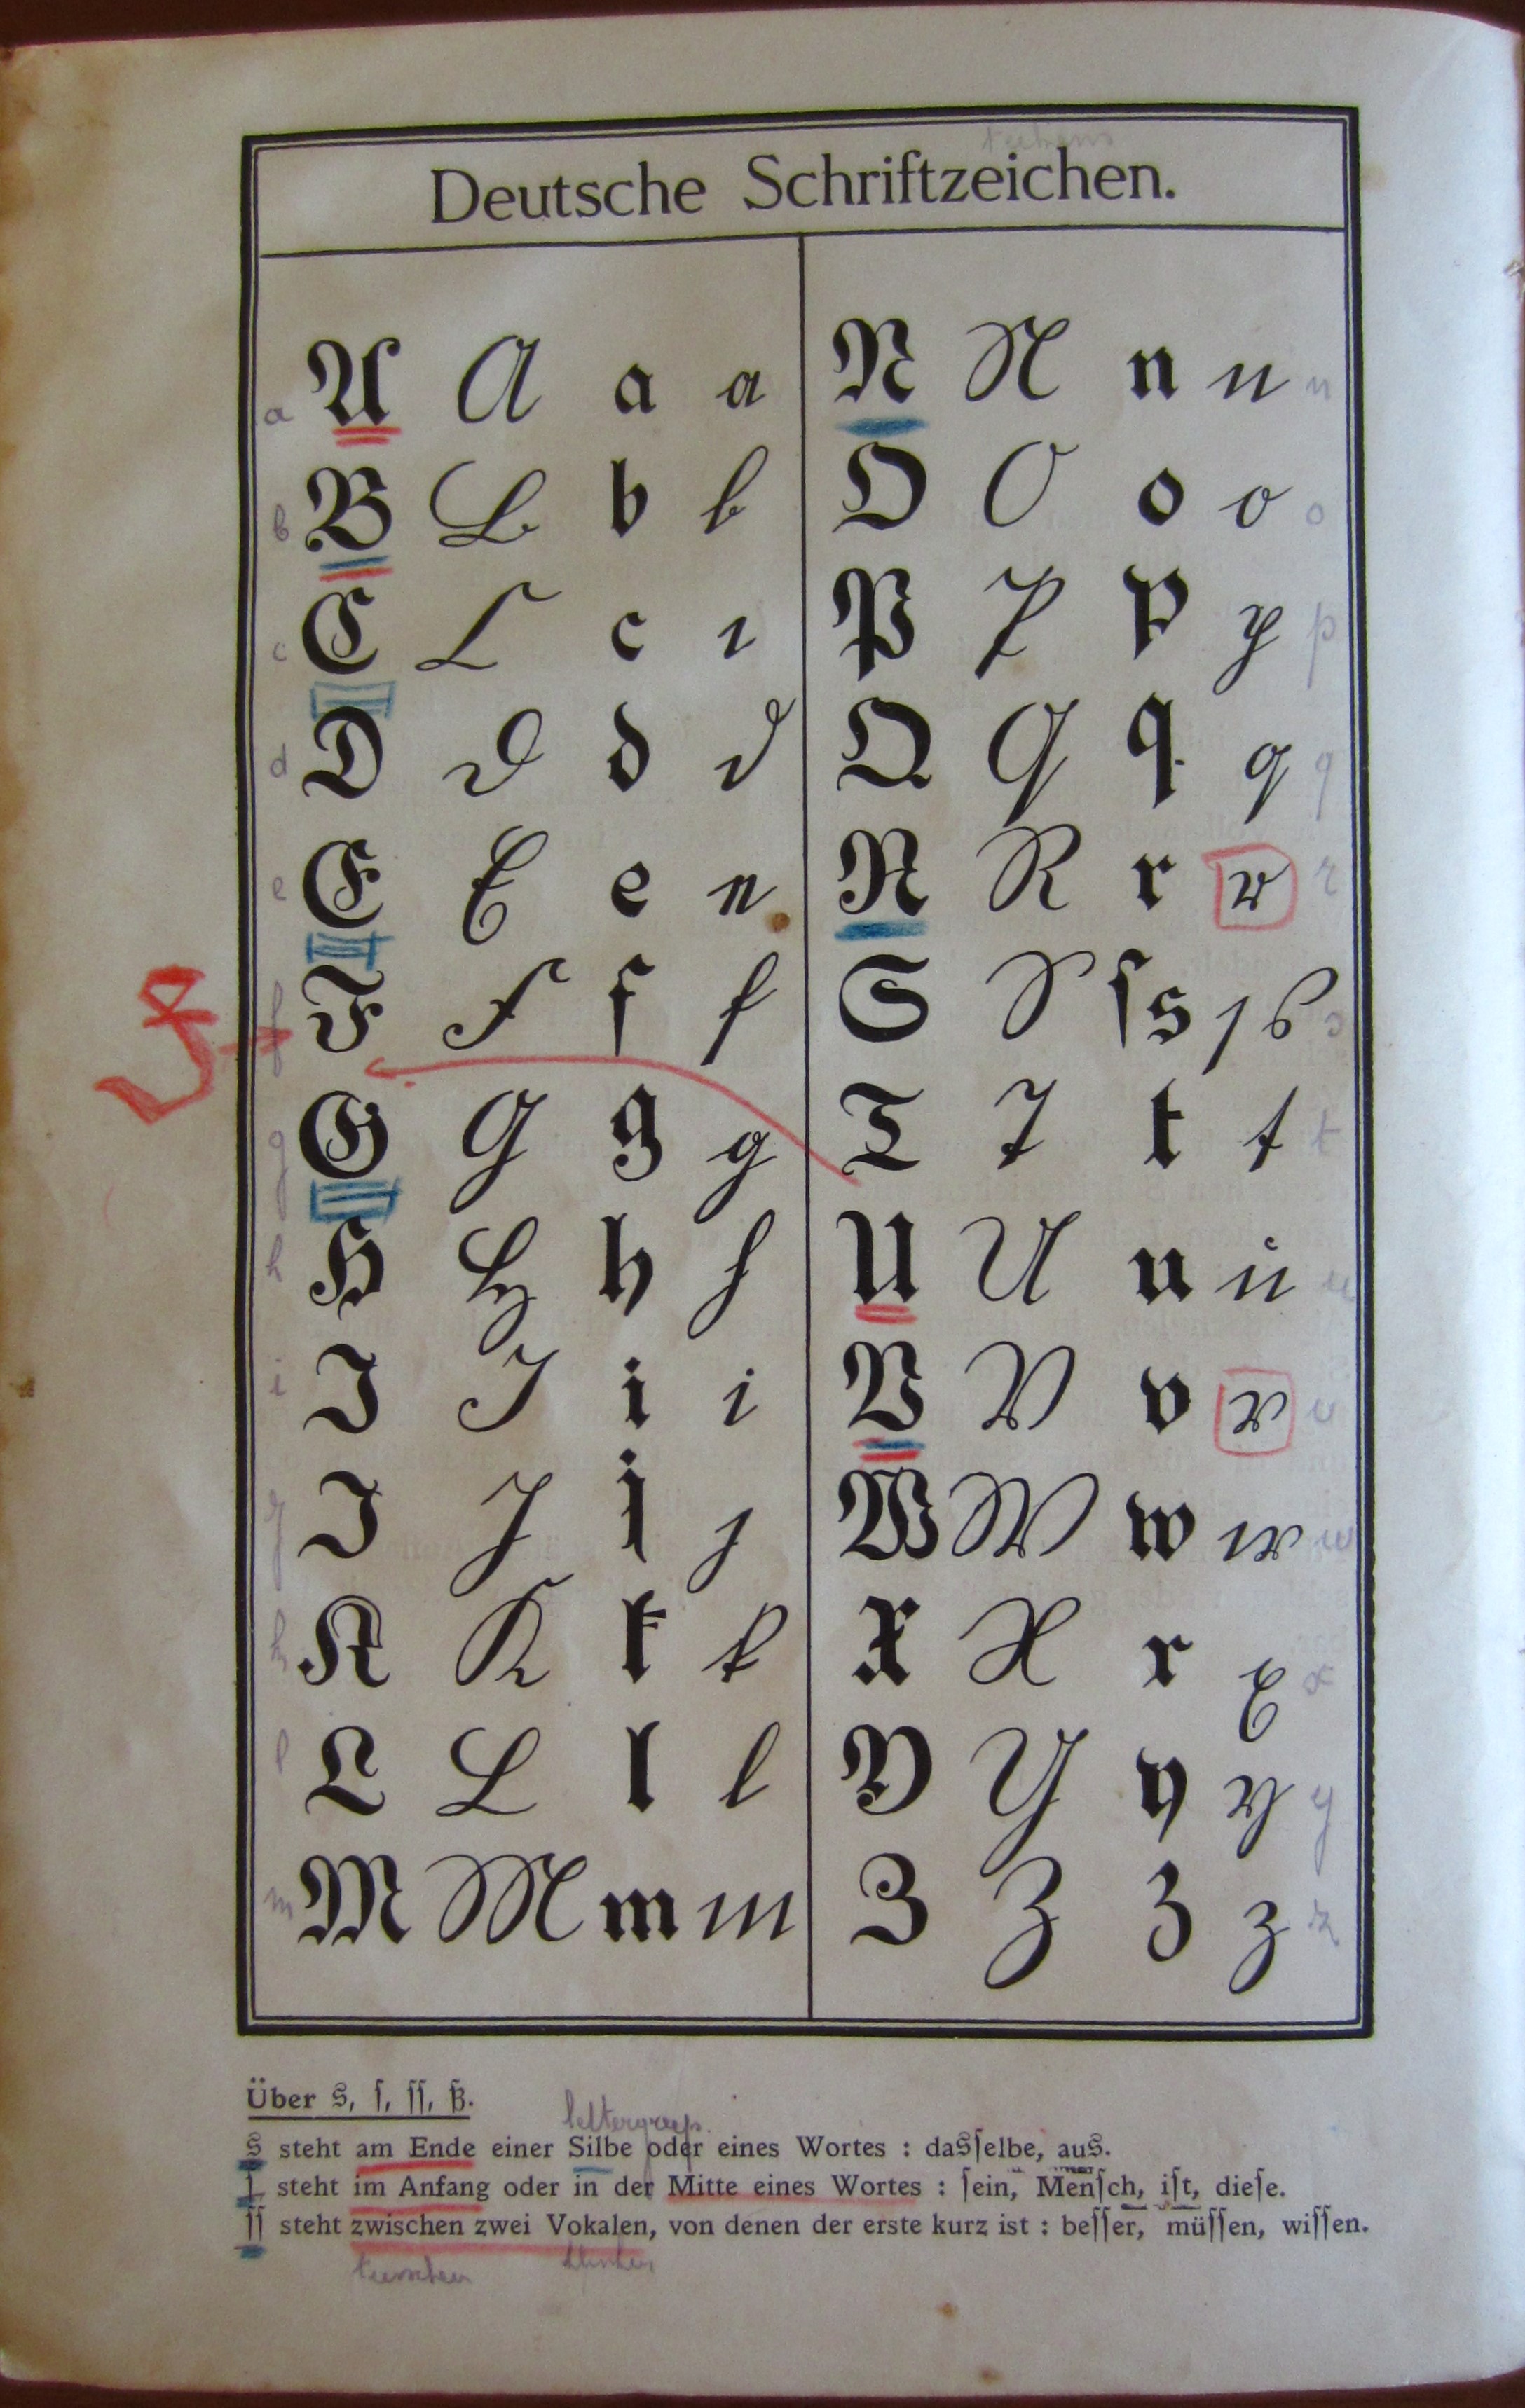 Deutsche Schriftzeichen.
a A A a a
b B B b b
c C C c c
d D D d d
e E E e e
f F F f f
g G G g g
h H H h h
i I I i i
J J j j
K K k k
l L L l l
m M M m m
N N n n n
O O o o o
P P p p p
Q Q q q q
R R r r r
S S ſ s ſ s s
T T t t t
U U u u u
V V v v v
W W w w w
X X x x x
Y Y y y y
Z Z z z z
Über s, ſ, ſſ, ß.
lettergreep.
s steht am Ende einer Silbe oder eines Wortes : dasſelbe, aus.
ſ steht im Anfang oder in der Mitte eines Wortes : ſein, Menſch, iſt, dieſe.
ſſ steht zwischen zwei Vokalen, von denen der erste kurz ist : beſſer, müſſen, wiſſen.
tusschen klinkers